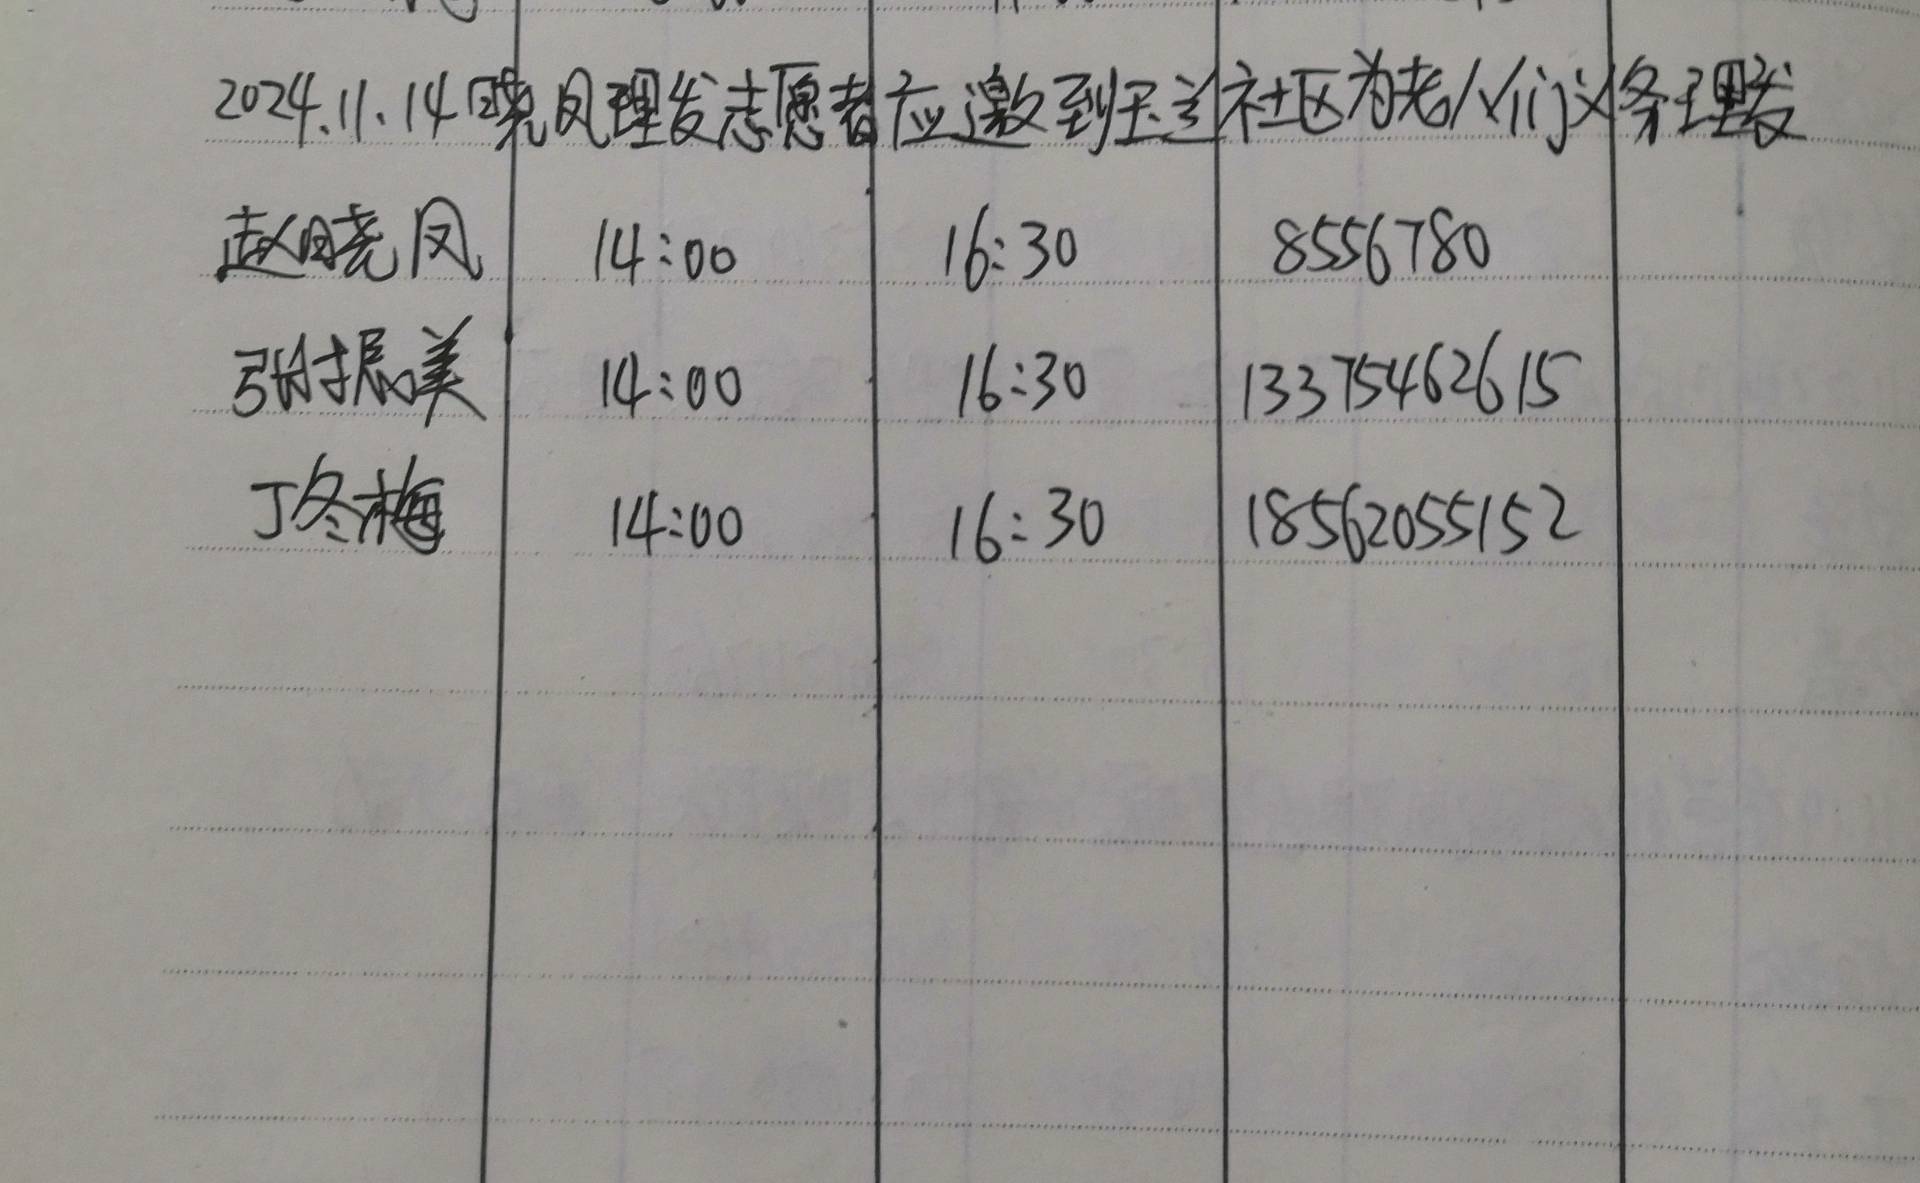 2024.11.14晓凤理发志愿者应邀到玉兰社区为老人们义务理发
赵晓凤 14:00 16:30 8556780
张振美 14:00 16:30 13375462615
丁冬梅 14:00 16:30 18562055152